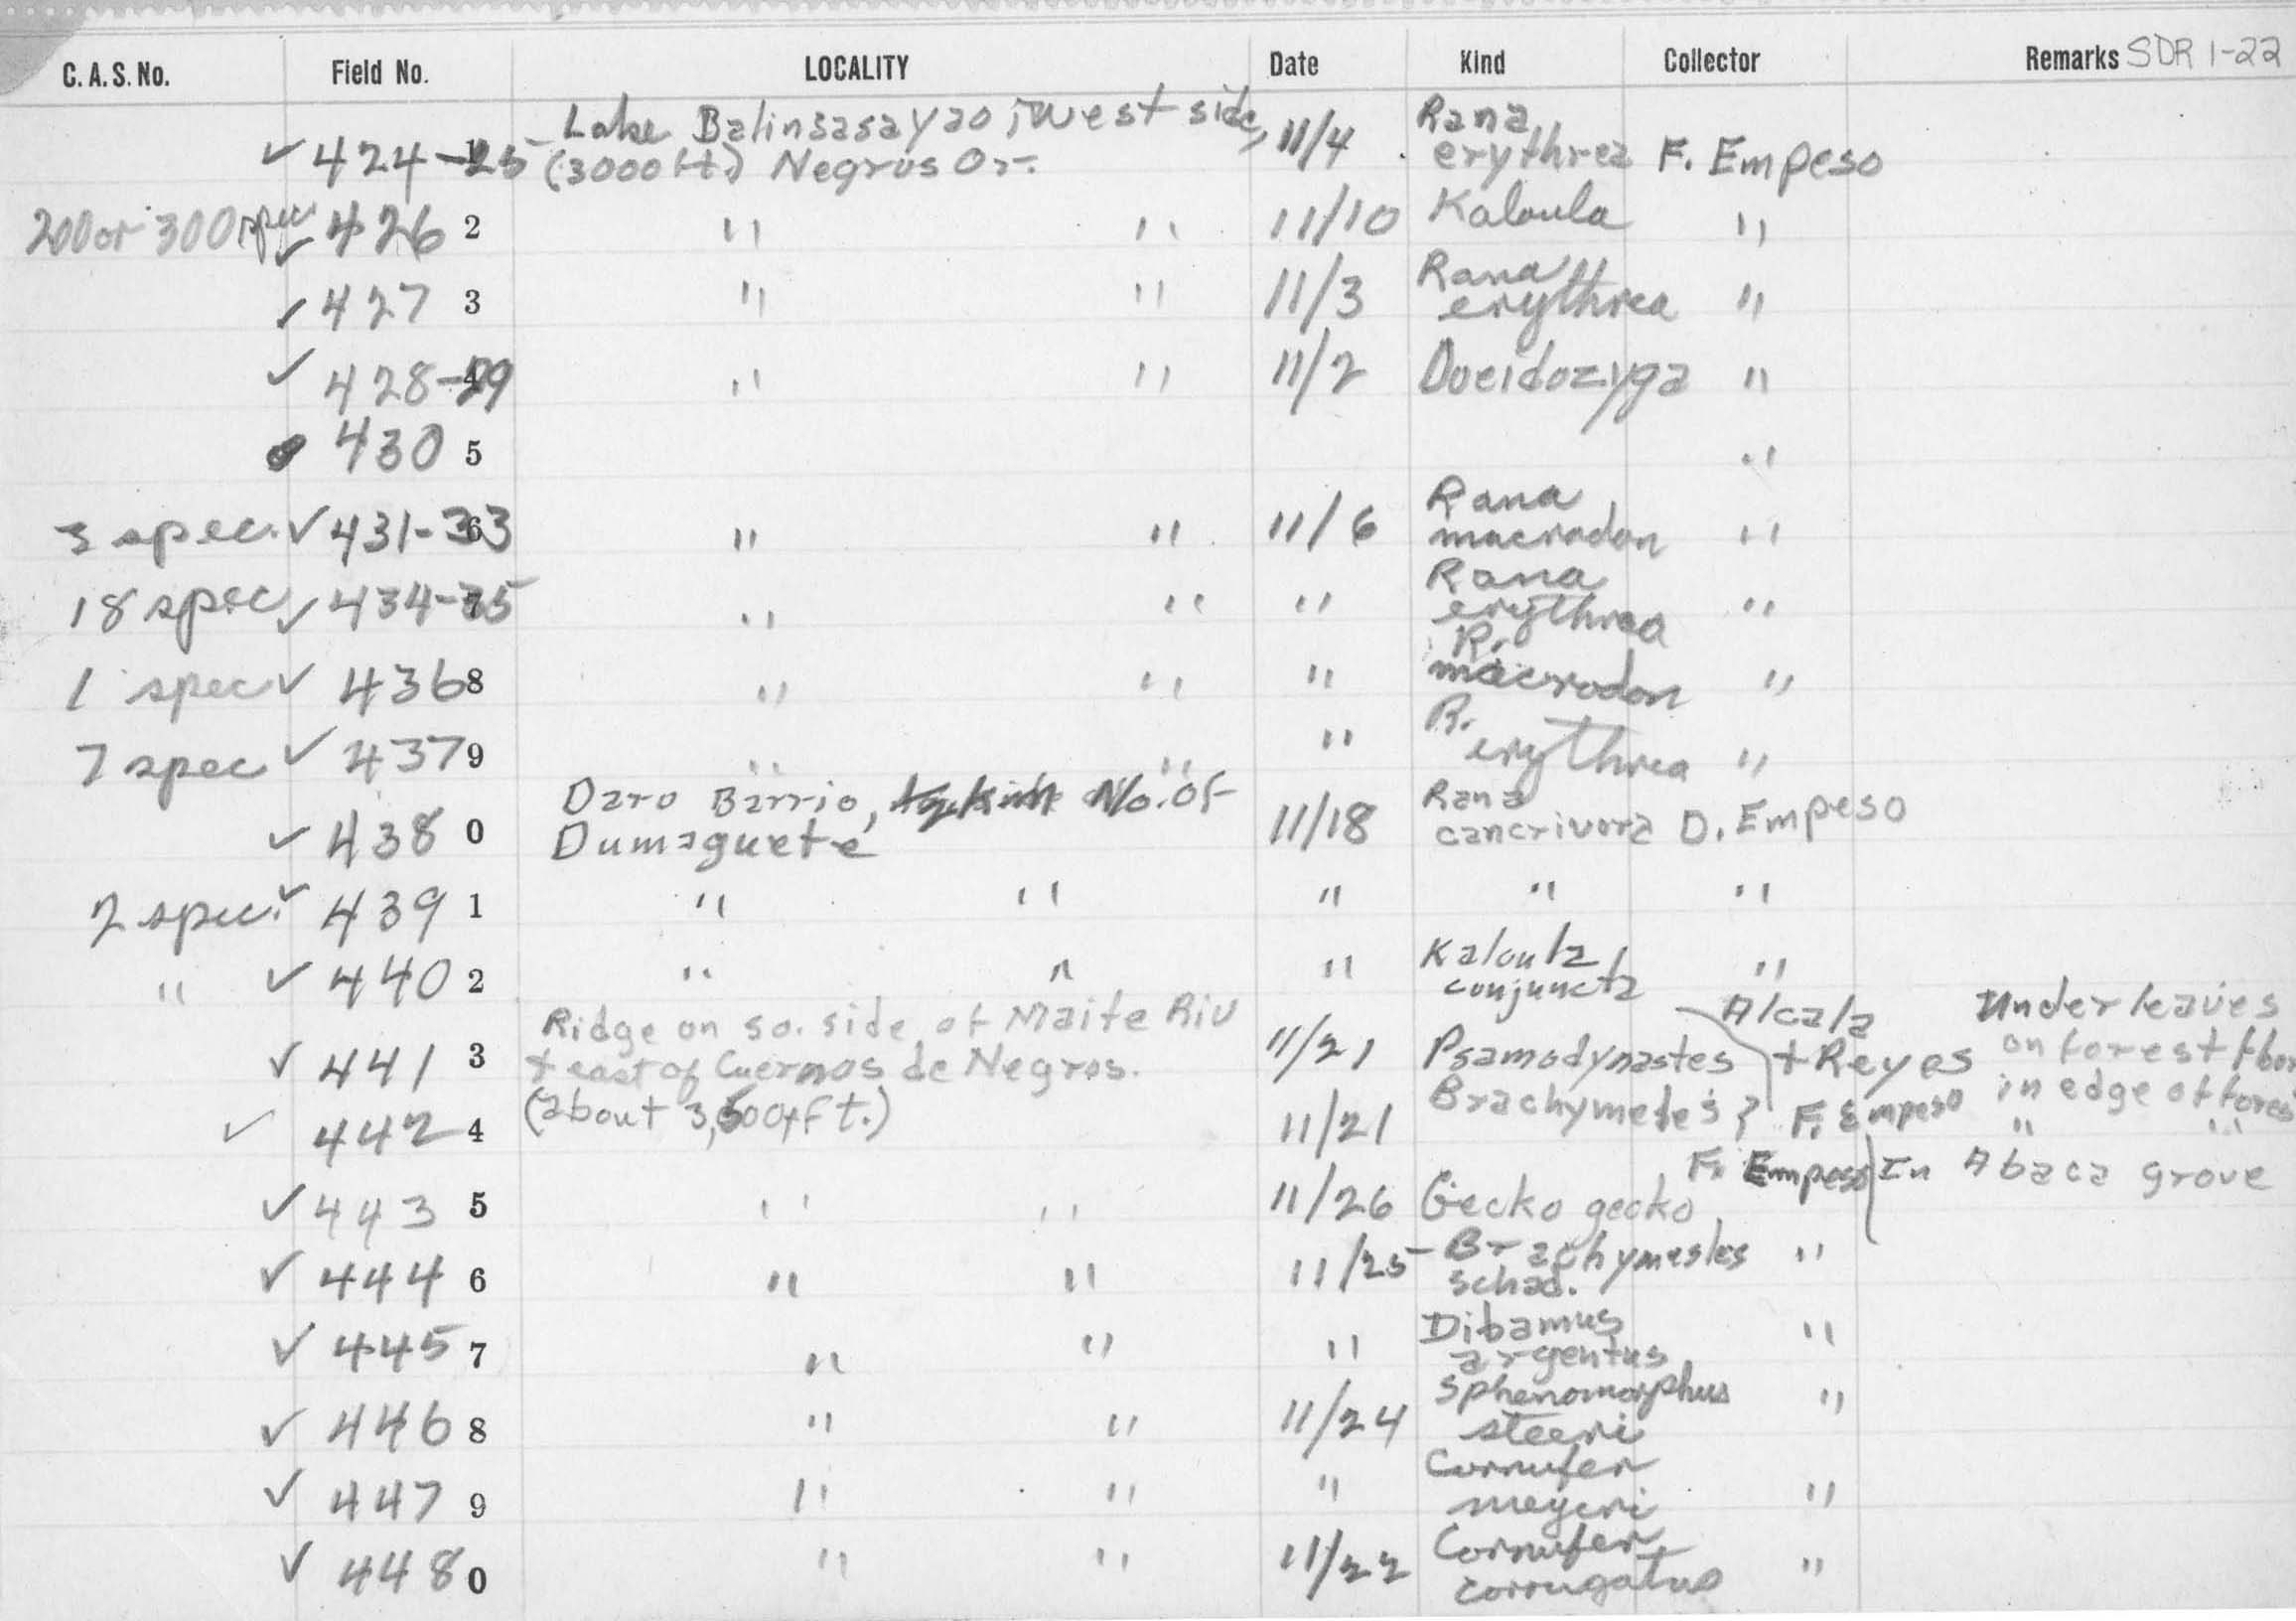 C.A.S. No. Field No. LOCALITY Date Kind Collector Remarks SDR 1-22
Lake Balinsasayao, west side, Rana
✓ 424-25 1 (3000 ft.) Negros Or. 11/4 erythrea F. Empeso
200 or 300 spec. ✓ 426 2 " " 11/10 Kaloula "
✓ 427 3 " " 11/3 Rana erythrea "
✓ 428-29 4 " " 11/2 Ooeidozyga "
430 5 "
3 spec. ✓ 431-33 6 " " 11/6 Rana macrodon "
18 spec ✓ 434-35 7 " " " Rana erythrea "
1 spec ✓ 436 8 " " " R. macrodon "
7 spec ✓ 437 9 " " " R. erythrea "
Daro Barrio, No. of Rana
✓ 438 0 Dumaguete 11/18 cancrivora D. Empeso
2 spec. ✓ 439 1 " " " " "
" ✓ 440 2 " " " Kaloula conjuncta "
Ridge on so. side of Maite Riv Alcala Under leaves
✓ 441 3 + east of Cuernos de Negros. 11/21 Psamodynastes + Reyes on forest floor
✓ 442 4 (about 3,500 ft.) 11/21 Brachymeles? F. Empeso in edge of forest
" "
✓ 443 5 " " 11/26 Gecko gecko F. Empeso In Abaca grove
✓ 444 6 " " 11/25 Brachymeles schad. "
✓ 445 7 " " " Dibamus argentus "
✓ 446 8 " " 11/24 Sphenomorphus steeri "
✓ 447 9 " " " Cornufer meyeri "
✓ 448 0 " " 11/22 Cornufer corrugatus "